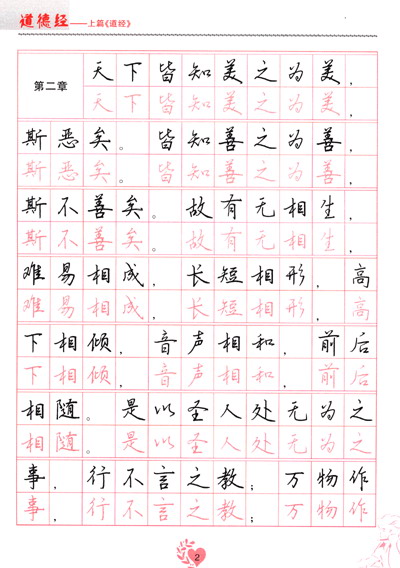 道德经——上篇《道经》
第二章
天下皆知美之为美，
天下皆知美之为美，
斯恶矣。皆知善之为善，
斯恶矣。皆知善之为善，
斯不善矣。故有无相生，
斯不善矣。故有无相生，
难易相成，长短相形，高
难易相成，长短相形，高
下相倾，音声相和，前后
下相倾，音声相和，前后
相随。是以圣人处无为之
相随。是以圣人处无为之
事，行不言之教；万物作
事，行不言之教；万物作
2